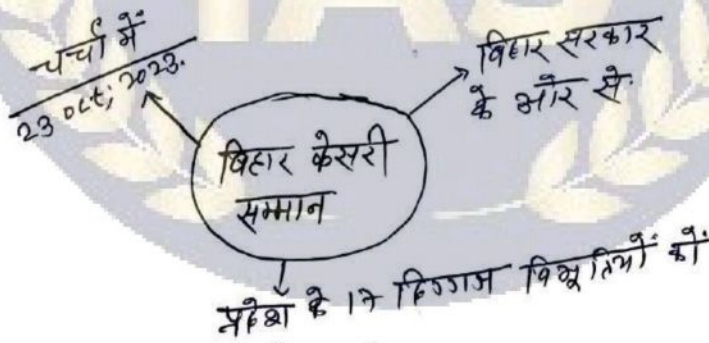 चर्चा में
23 oct; 2023.
बिहार सरकार
के ओर से
बिहार केसरी
सम्मान
प्रदेश के 17 दिग्गज विभूतियों को